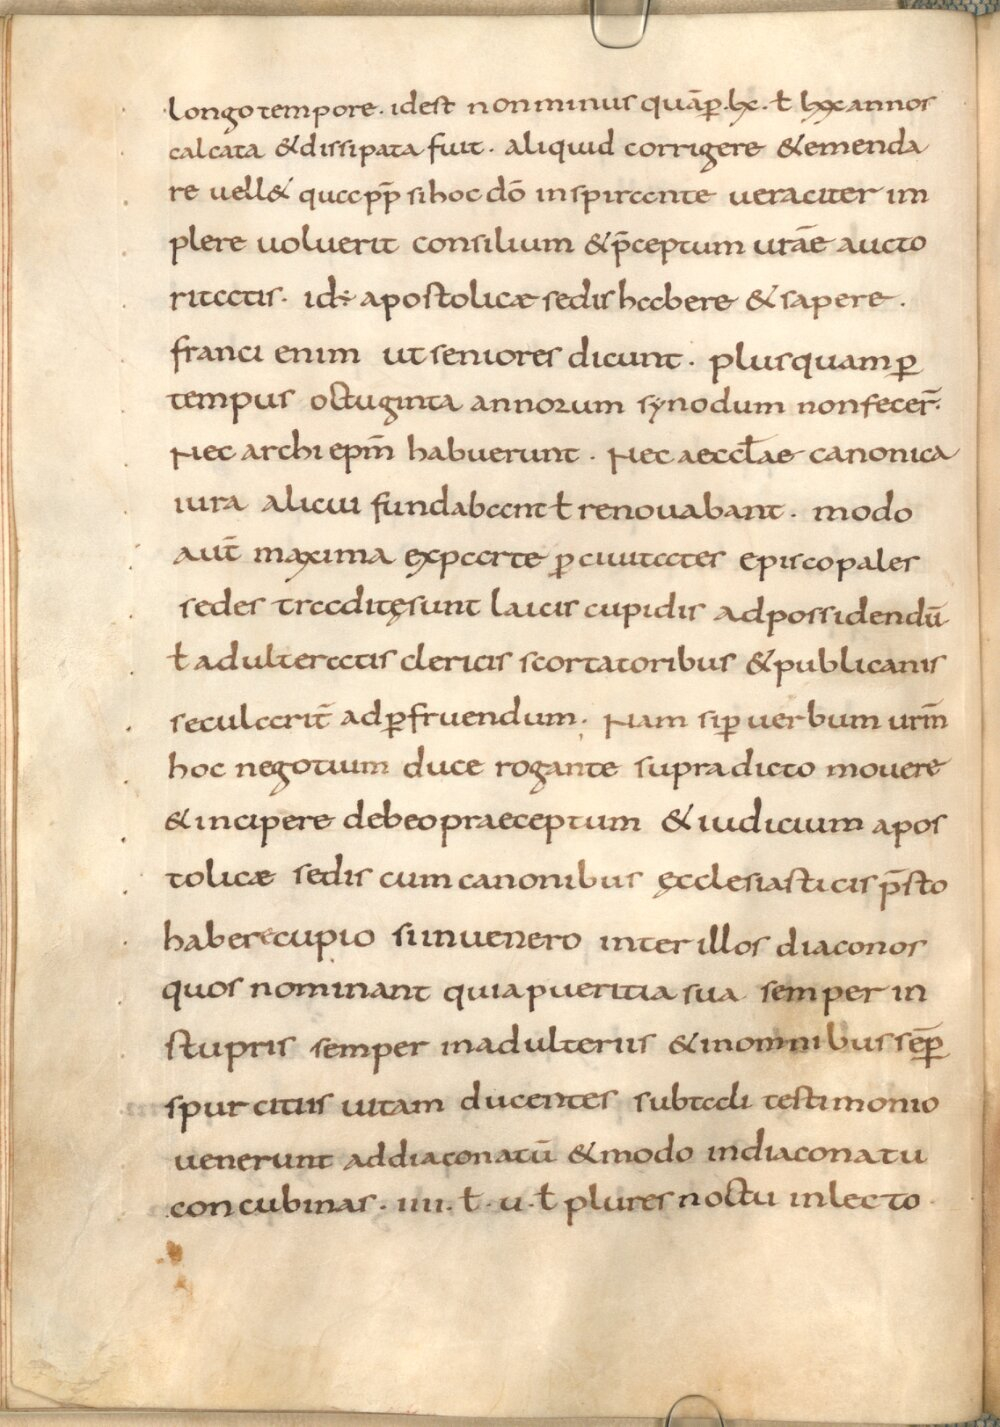 longo tempore · idest non minus quāp̄ · lx · ł lxx annos
calcata & dissipata fuit · aliquid corrigere & emenda
re vell& quapp̄ si hoc dō inspirante veraciter im
plere voluerit consilium & p̄ceptum urāe aucto
ritatis · id÷ apostolicæ sedis habere & sapere ·
franci enim ut seniores dicunt · plus quam ꝑ
tempus octuginta annorum synodum non fecer̄ ·
Nec archiepm̄ habuerunt · Nec aeccłae canonica
iura alicui fundabant ł renovabant · modo
aut̄ maxima ex parte ꝑ civitates episcopales
sedes traditę sunt laicis cupidis ad possidendū
ł adulteratis clericis scortatoribus & publicanis
secularit̄ ad ꝑfruendum · Nam si ꝑ verbum urm̄
hoc negotium duce rogante supradicto movere
& incipere debeo praeceptum & iudicium apos
tolicæ sedis cum canonibus ęcclesiasticis p̄sto
habere cupio si invenero inter illos diaconos
quos nominant quia pueritia sua semper in
stupris semper in adulteriis & in omnibus sēꝑ
spurcitiis vitam ducentes sub tali testimonio
venerunt ad diaconatū & modo in diaconatu
concubinas · iiii · ł · u · ł plures noctu in lecto